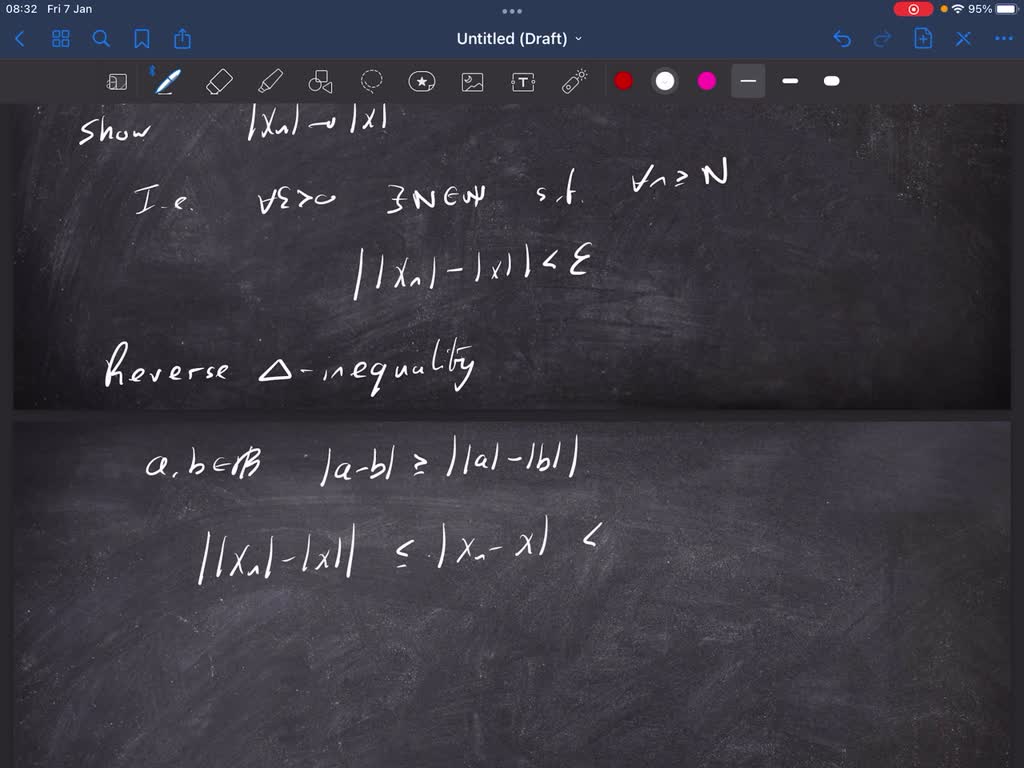 08:32 Fri 7 Jan 95%
Untitled (Draft)
Show |xₙ| → |x|
I.e. ∀ε>0 ∃N∈ℕ s.t. ∀n≥N
||xₙ|-|x|| < ε
Reverse Δ-inequality
a,b∈ℝ |a-b| ≥ ||a|-|b||
||xₙ|-|x|| ≤ |xₙ-x| <